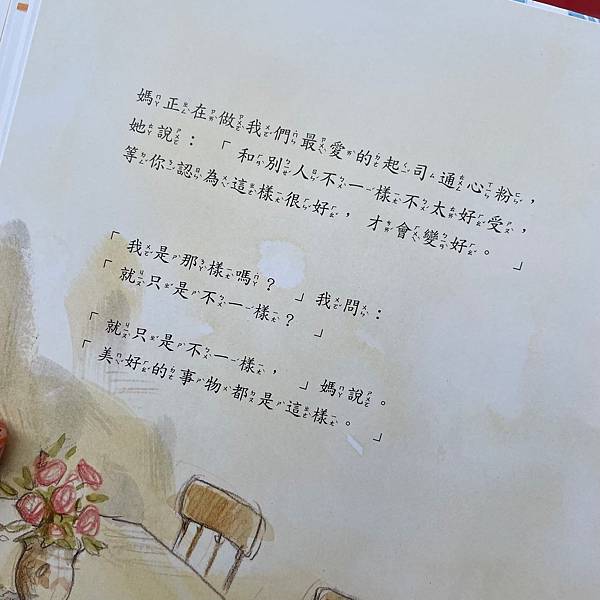 媽正在做我們最愛的起司通心粉，
她說：「和別人不一樣不太好受，
等你認為這樣很好，才會變好。」
「我是那樣嗎？」我問：
「就只是不一樣？」
「就只是不一樣，」媽說。
「美好的事物都是這樣。」